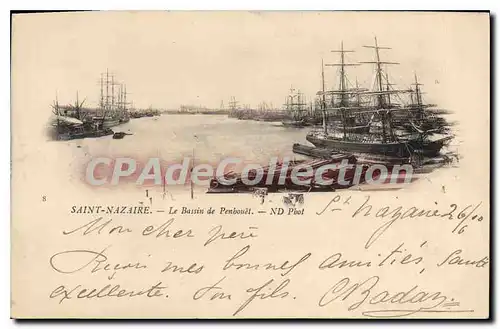 8
SAINT-NAZAIRE. — Le Bassin de Penhouët. — ND Phot
CPA-Collection.com
St Nazaire 26/10
Mon cher père
Reçois mes bonnes amitiés, santé
excellente. Ton fils.